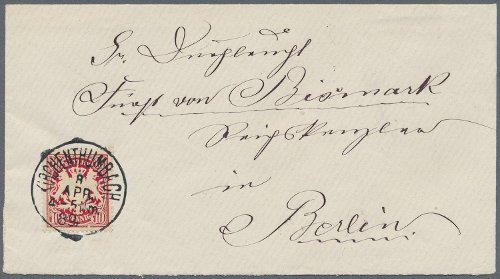 Sr. Durchlaucht
Fürst von Bismark
Reichskanzler
in
Berlin.
KIRCHENTHUMBACH
8
APR.
10 10